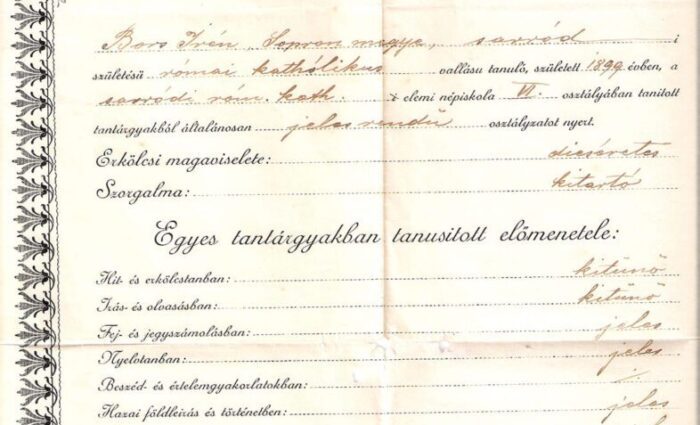 Bors Irén, Sopron megye, sarród i
születésü római katholikus vallásu tanuló, született 1899 évben, a
sarródi róm. kath. i elemi népiskola VI. osztályában tanitott
tantárgyakból általánosan jeles rendü osztályzatot nyert.
Erkölcsi magaviselete: dicséretes
Szorgalma: kitartó
Egyes tantárgyakban tanusitott előmenetele:
Hit- és erkölcstanban: kitünő
Irás- és olvasásban: kitünő
Fej- és jegyszámolásban: jeles
Nyelvtanban: jeles
Beszéd- és értelemgyakorlatokban:
Hazai földleirás és történetben: jeles